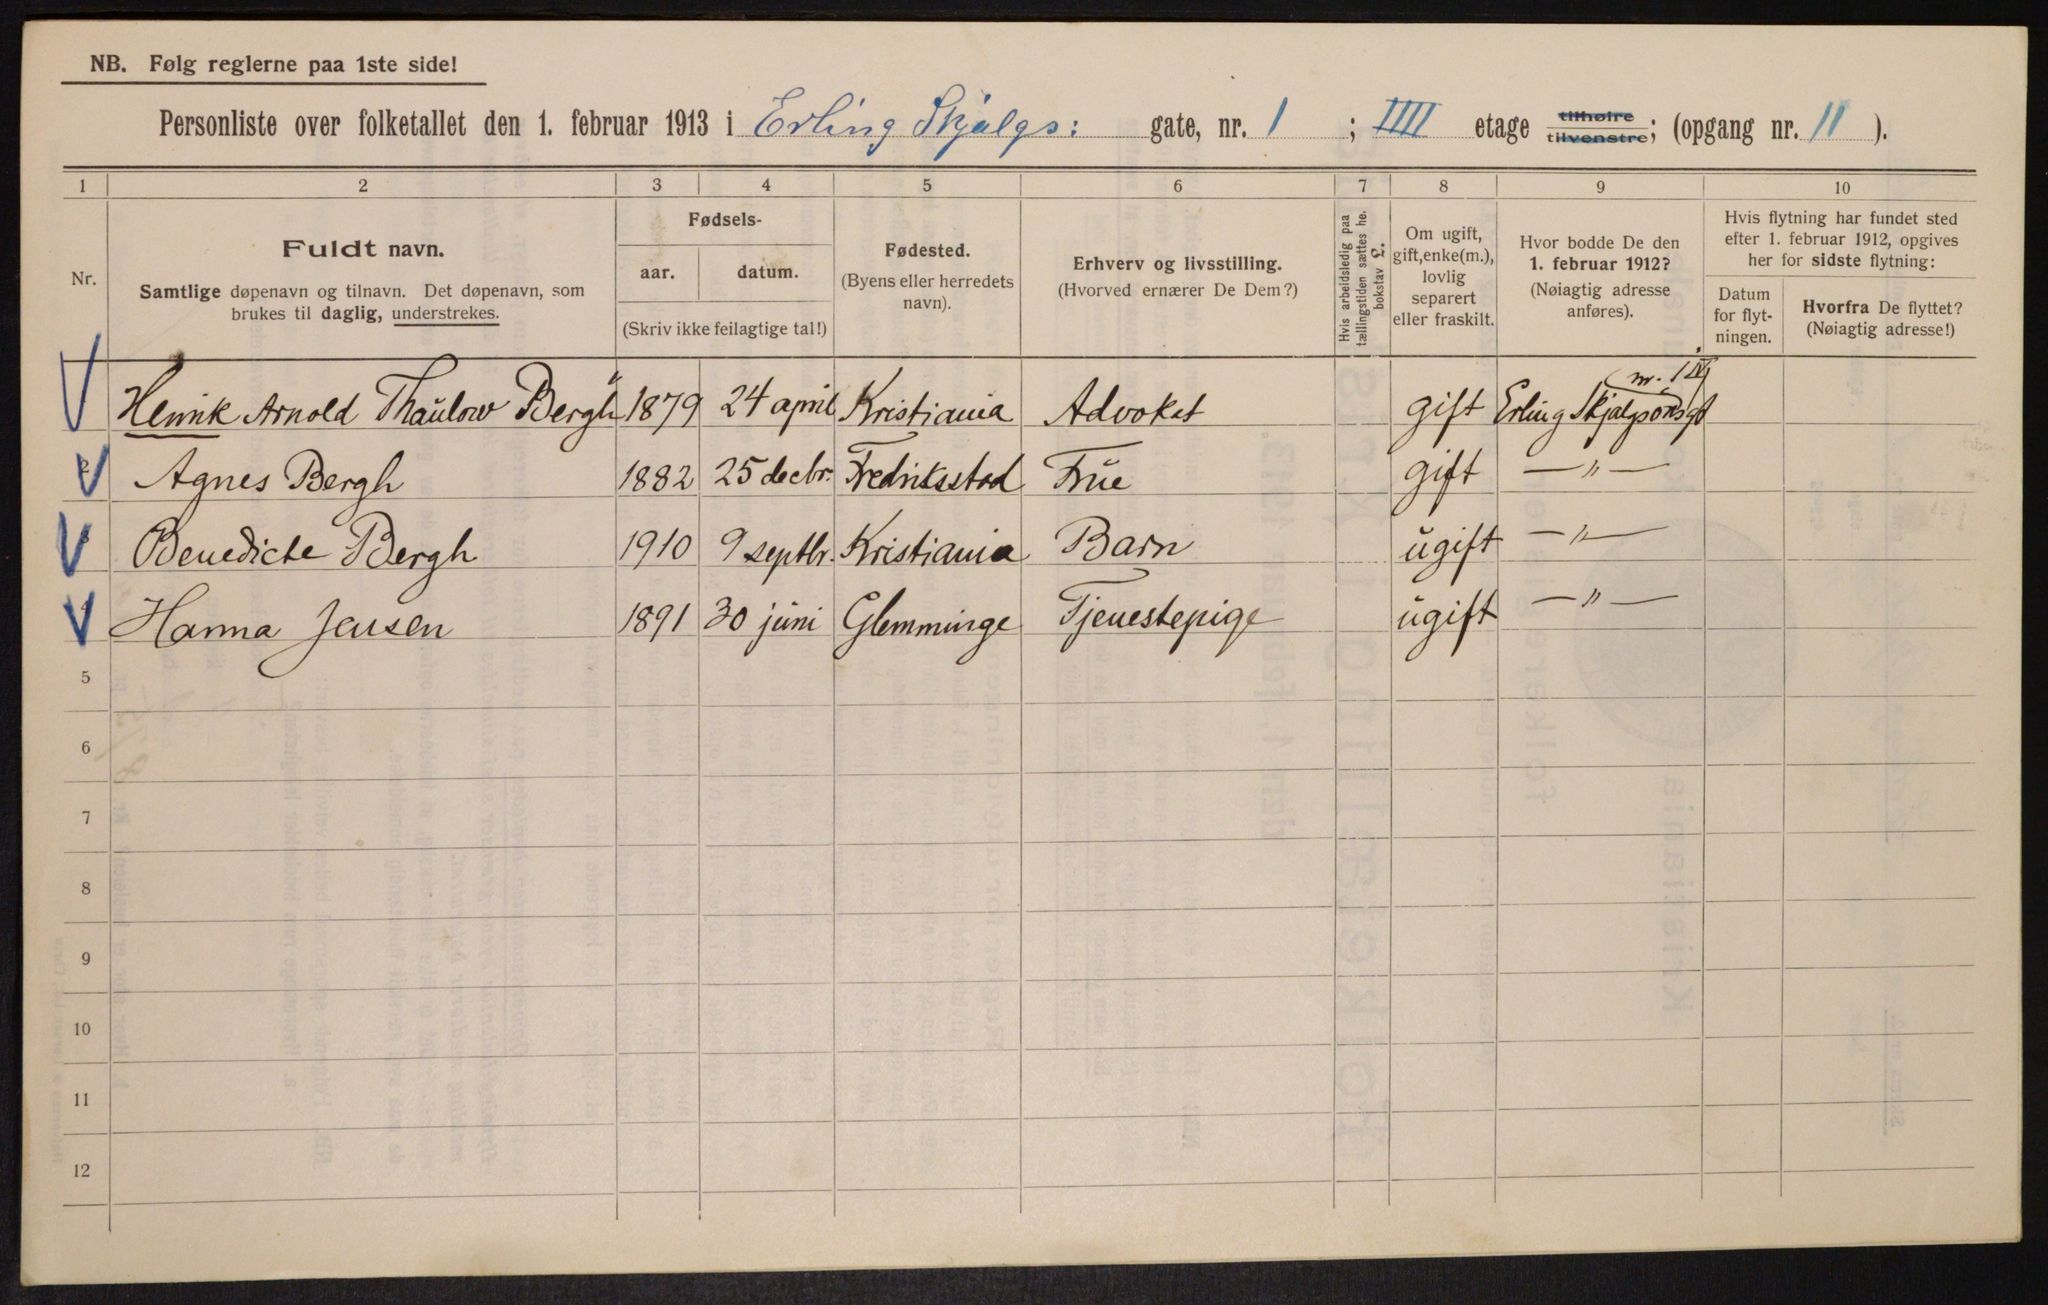 NB. Følg reglerne paa 1ste side!
Personliste over folketallet den 1. februar 1913 i Erling Skjalgs: gate, nr. 1 ; IIII etage tilhøire tilvenstre; (opgang nr. 11 ).
1 2 3 4 5 6 7 8 9 10
Nr.
Fuldt navn.
Samtlige døpenavn og tilnavn. Det døpenavn, som
brukes til daglig, understrekes.
Fødsels-
aar. datum.
(Skriv ikke feilagtige tal!)
Fødested.
(Byens eller herredets
navn).
Erhverv og livsstilling.
(Hvorved ernærer De Dem?)
Hvis arbeidsledig paa
tællingstiden sættes he.
bokstav L.
Om ugift,
gift, enke(m.),
lovlig
separert
eller fraskilt.
Hvor bodde De den
1. februar 1912?
(Nøiagtig adresse
anføres).
Hvis flytning har fundet sted
efter 1. februar 1912, opgives
her for sidste flytning:
Datum
for flyt-
ningen.
Hvorfra De flyttet?
(Nøiagtig adresse!)
nr. 1 IV
Henrik Arnold Thaulow Bergh 1879 24 april Kristiania Advokat gift Erling Skjalgsonsgt
2 Agnes Bergh 1882 25 decbr. Fredriksstad Frue gift — " —
3 Benedicte Bergh 1910 9 septbr. Kristiania Barn ugift — " —
4 Hanna Jensen 1891 30 juni Glemminge Tjenestepige ugift — " —
5
6
7
8
9
10
11
12